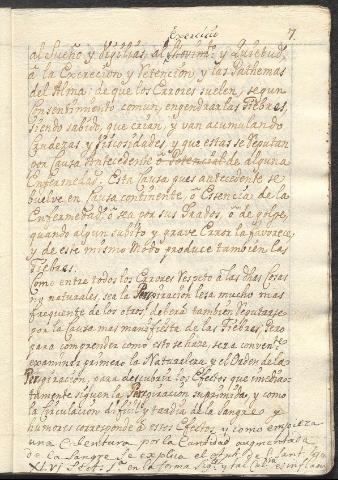 Exercicio
7
al Sueño y Vigilias, al Movimto. y Quietud,
à la Excrecion, y Retencion, y las Pathemas
del Alma: de que los Errores suelen, segun
Consentimiento comun, engendrar las Fiebres,
siendo sabido, que crian, y van acumulando
Crudezas, y Viscosidades, y que estas se reputan
por Causa Antecedente ò Potencial de alguna
Enfermedad. Esta Causa pues antecedente se
buelve en Causa continente, ò Essencia de la
Enfermedad, ò sea por sus Grados, ò de golpe,
quando algun subito y grave Error la favorece,
y de este mismo Modo produce tambien las
Fiebres.
Como entre todos los Errores respeto à las dhas Cosas
no naturales, sea la Perspiracion lesa mucho mas
frequente de los otros, deberà tambien reputarse
por la Causa mas manifiesta de las Fiebres; Pero
para comprender como esto se hace, serà convente.
examinar primero la Naturaleza y el Orden de la
Perspiracion, para descubrir los Efectos que inmedia-
tamente siguen la Perspiracion suprimida, y como
la Circulacion dificil y tardia de la Sangre y
humores corresponde à esos Efectos, y como empieza
una Calentura por la Cantidad augmentada
de la Sangre se explica el Aph. de Sant.
XLVI Sect. 1ª en la forma